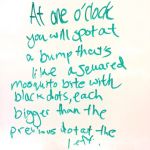 At one o'clock
you will spot at
a bump that's
like a squared
mosquito bite with
black dots, each
bigger than the
previous dot at the
left.